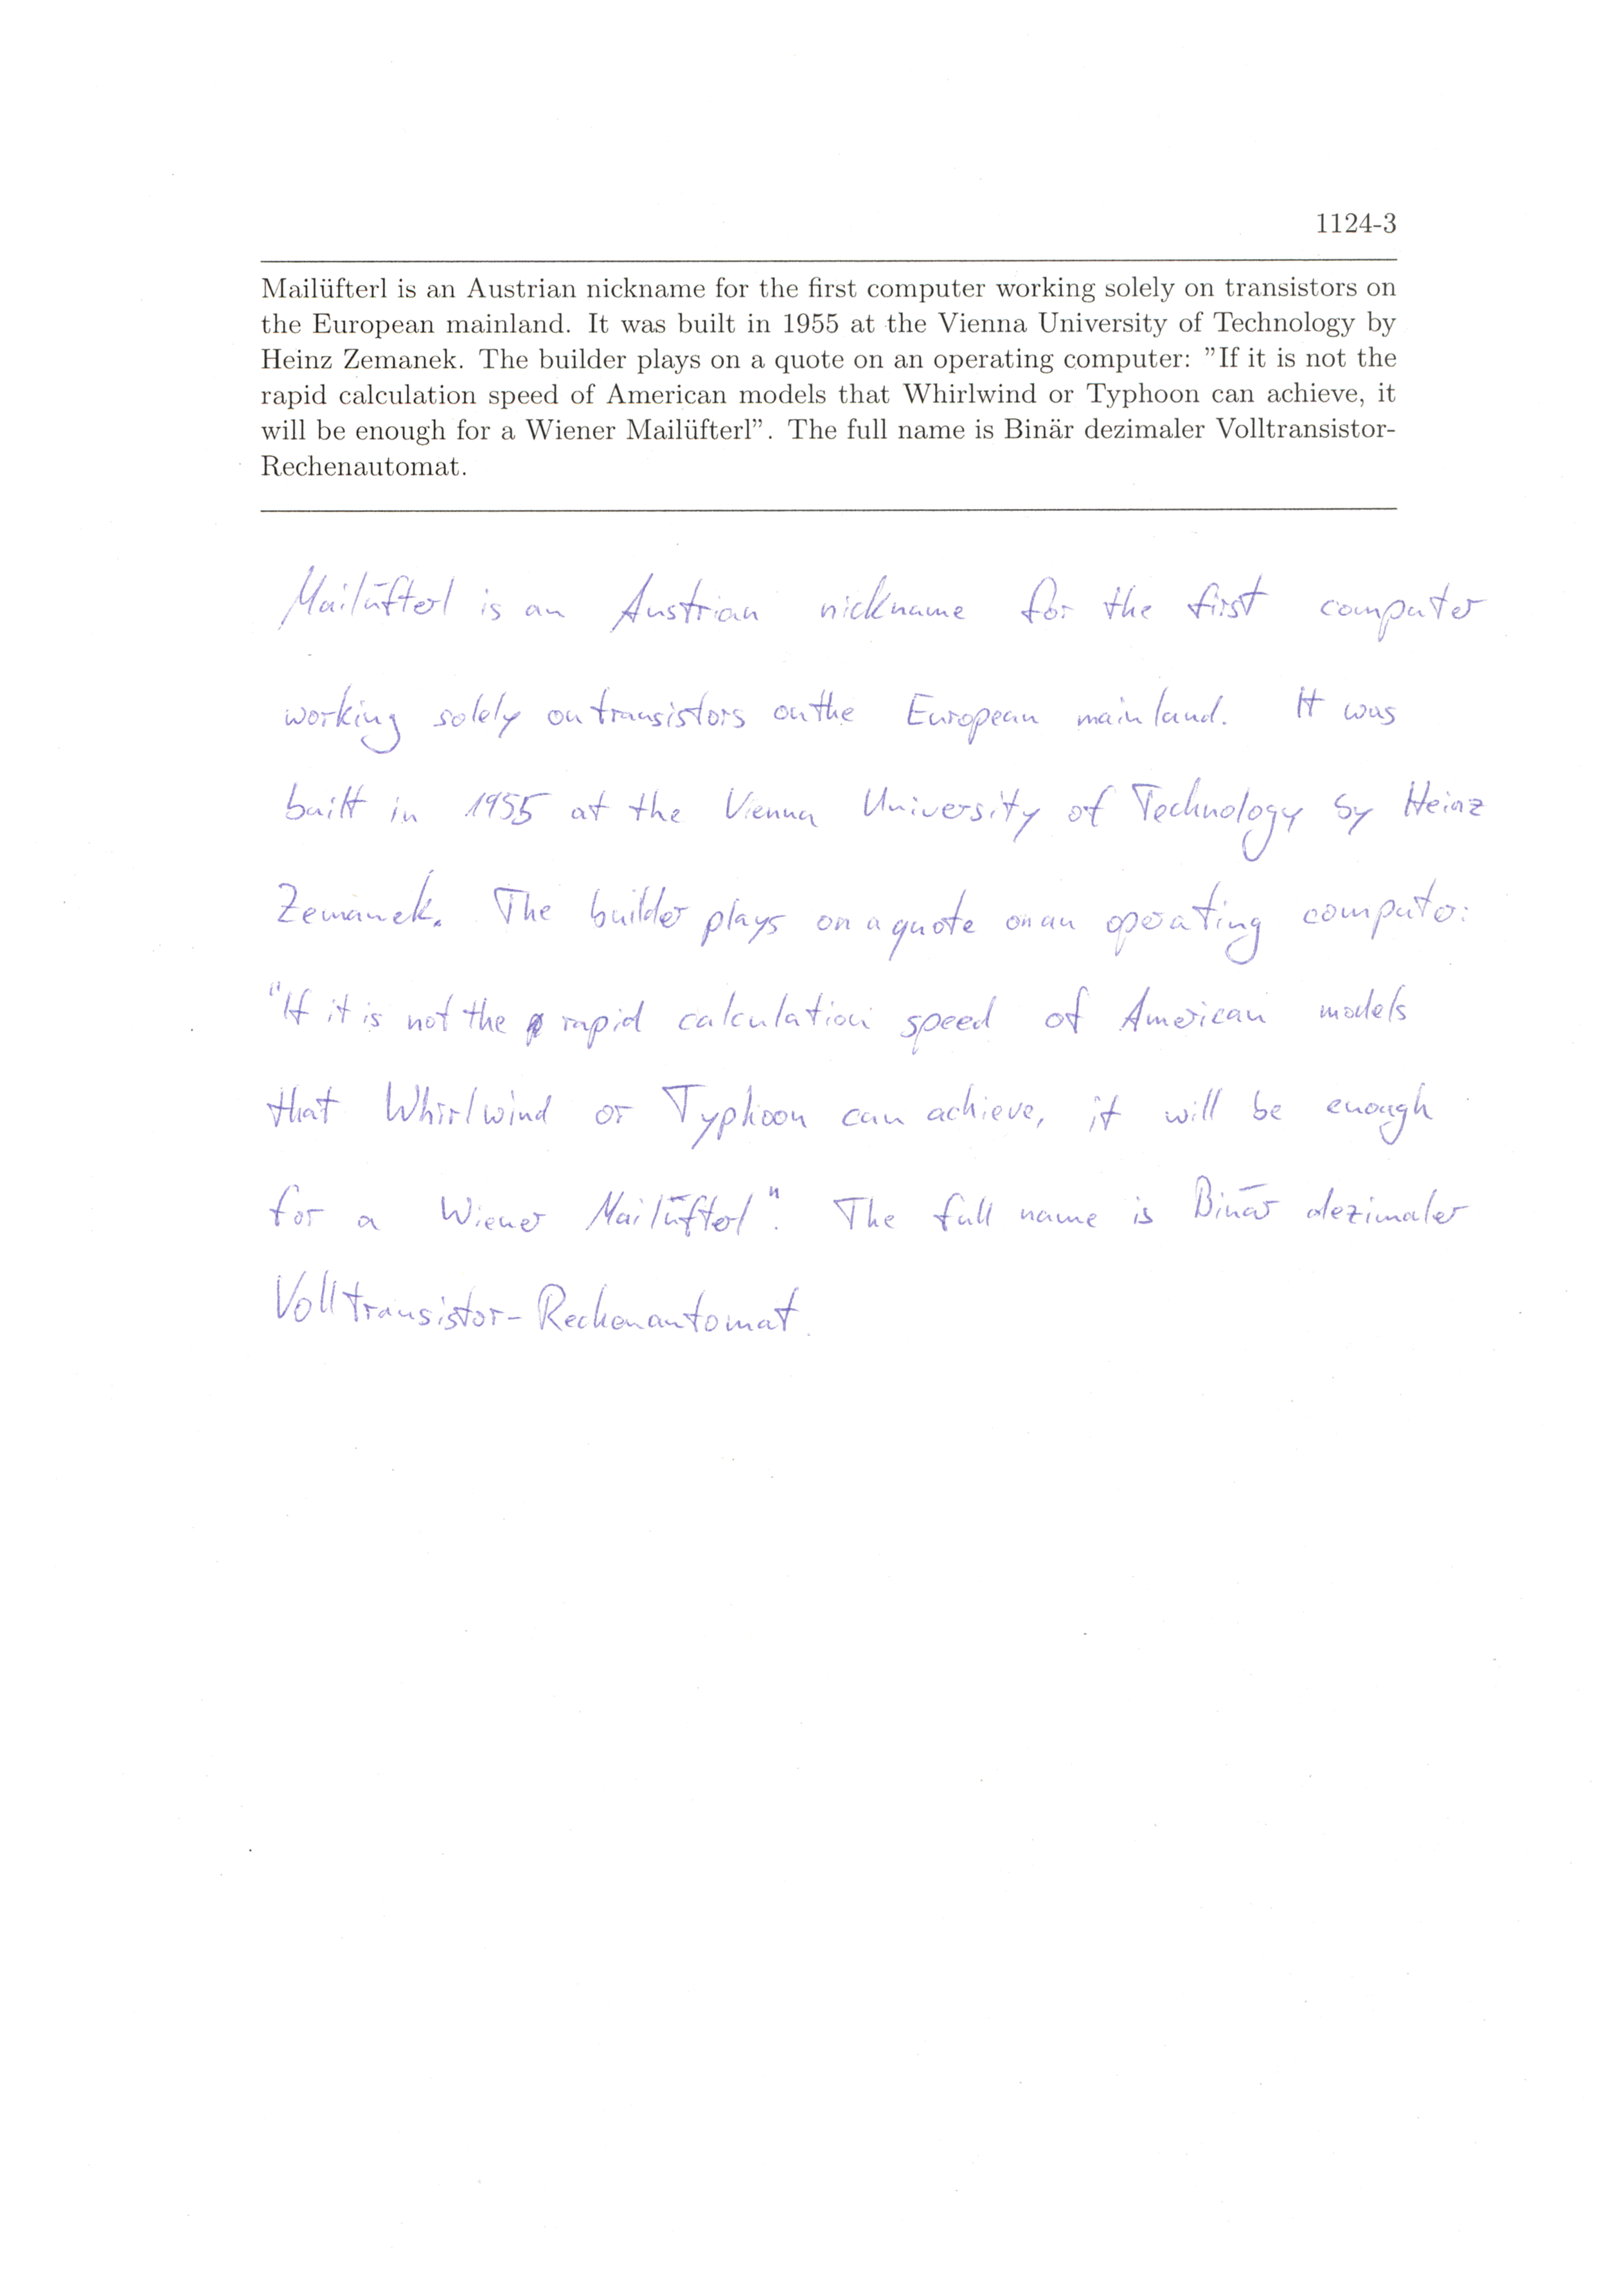 1124-3
Mailüfterl is an Austrian nickname for the first computer working solely on transistors on
the European mainland. It was built in 1955 at the Vienna University of Technology by
Heinz Zemanek. The builder plays on a quote on an operating computer: ”If it is not the
rapid calculation speed of American models that Whirlwind or Typhoon can achieve, it
will be enough for a Wiener Mailüfterl”. The full name is Binär dezimaler Volltransistor-
Rechenautomat.
Mailüfterl is an Austrian nickname for the first computer
working solely on transistors on the European mainland. It was
built in 1955 at the Vienna University of Technology by Heinz
Zemanek. The builder plays on a quote on an operating computer:
"If it is not the rapid calculation speed of American models
that Whirlwind or Typhoon can achieve, it will be enough
for a Wiener Mailüfterl". The full name is Binär dezimaler
Volltransistor-Rechenautomat.